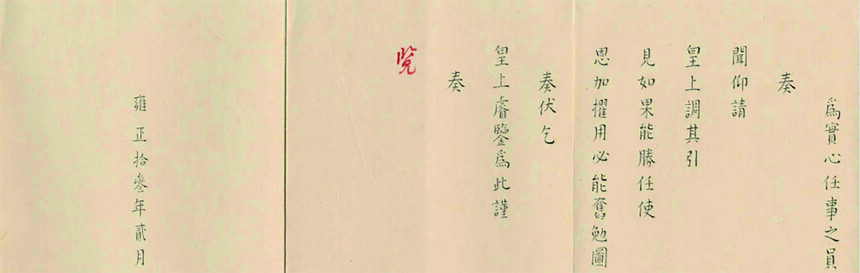 爲實心任事之員
奏
聞仰請
皇上調其引
見如果能勝任使
恩加擢用必能奮勉圖
奏伏乞
皇上睿鑒爲此謹
奏
覽
雍正拾叄年貳月